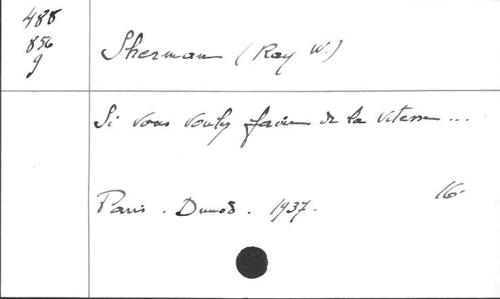 488
856
g
Sherman (Ray W.)
Si vous voulez faire de la vitesse ...
Paris . Dunod . 1937.
16.